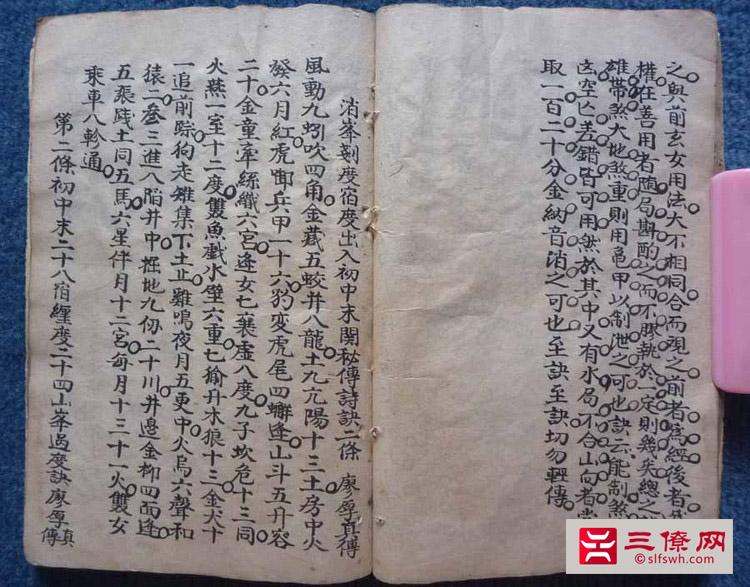 之與前玄女用法大不相同合而現之前者為經後者
權在善用者随局斟酌之而不膠執於一定則幾失總之
雄帶煞大地煞重則用亀甲以制泄之可也訣云能制煞
凶空亡差錯皆可用然於其中又有水局不合山向者
取一百二十分金納音消之可也至訣至訣切勿輕傳
消峯剝度宿度出入初中末関秘傳詩訣二條 廖厚真傳
風動九蚓吹四角金藏五蛟井八龍土九亢陽十三土房中火
癸六月紅虎御兵甲一十六豹变虎尾四逢山斗五升容
二十金童牽絲織六宮逢女七襄虛八度九子坎危十三同
火燕一室十二度雙魚戲水壁六重七偷升木狼十三金犬十
一追前踪狗走雉集下土止雞鳴夜月五更中火烏六聲和
猿二參三進八陷井中掘地九仞二十川井邊金柳四面逢
五張践土同五馬六星伴月十二宮每月十三十一火雙女
乘車八軫通
第二條初中末二十八宿纏度二十四山峯過度訣廖厚真傳
三僚网
slfswh.com